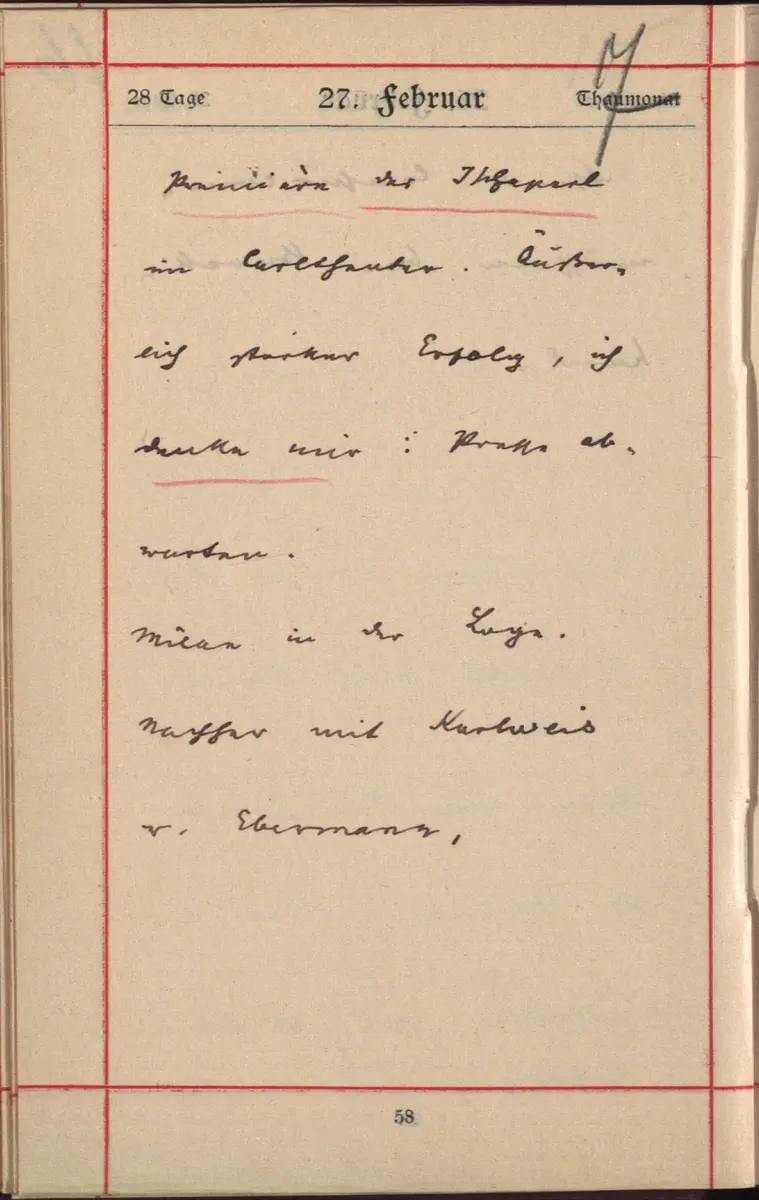 28 Tage 27. Februar Thaumonat
7
Première des Tschaperl
im Carltheater. Äußer-
lich starker Erfolg, ich
denke mir: Presse ab-
warten.
Milan in der Loge.
Nachher mit Karlweis
u. Ebermann,
58